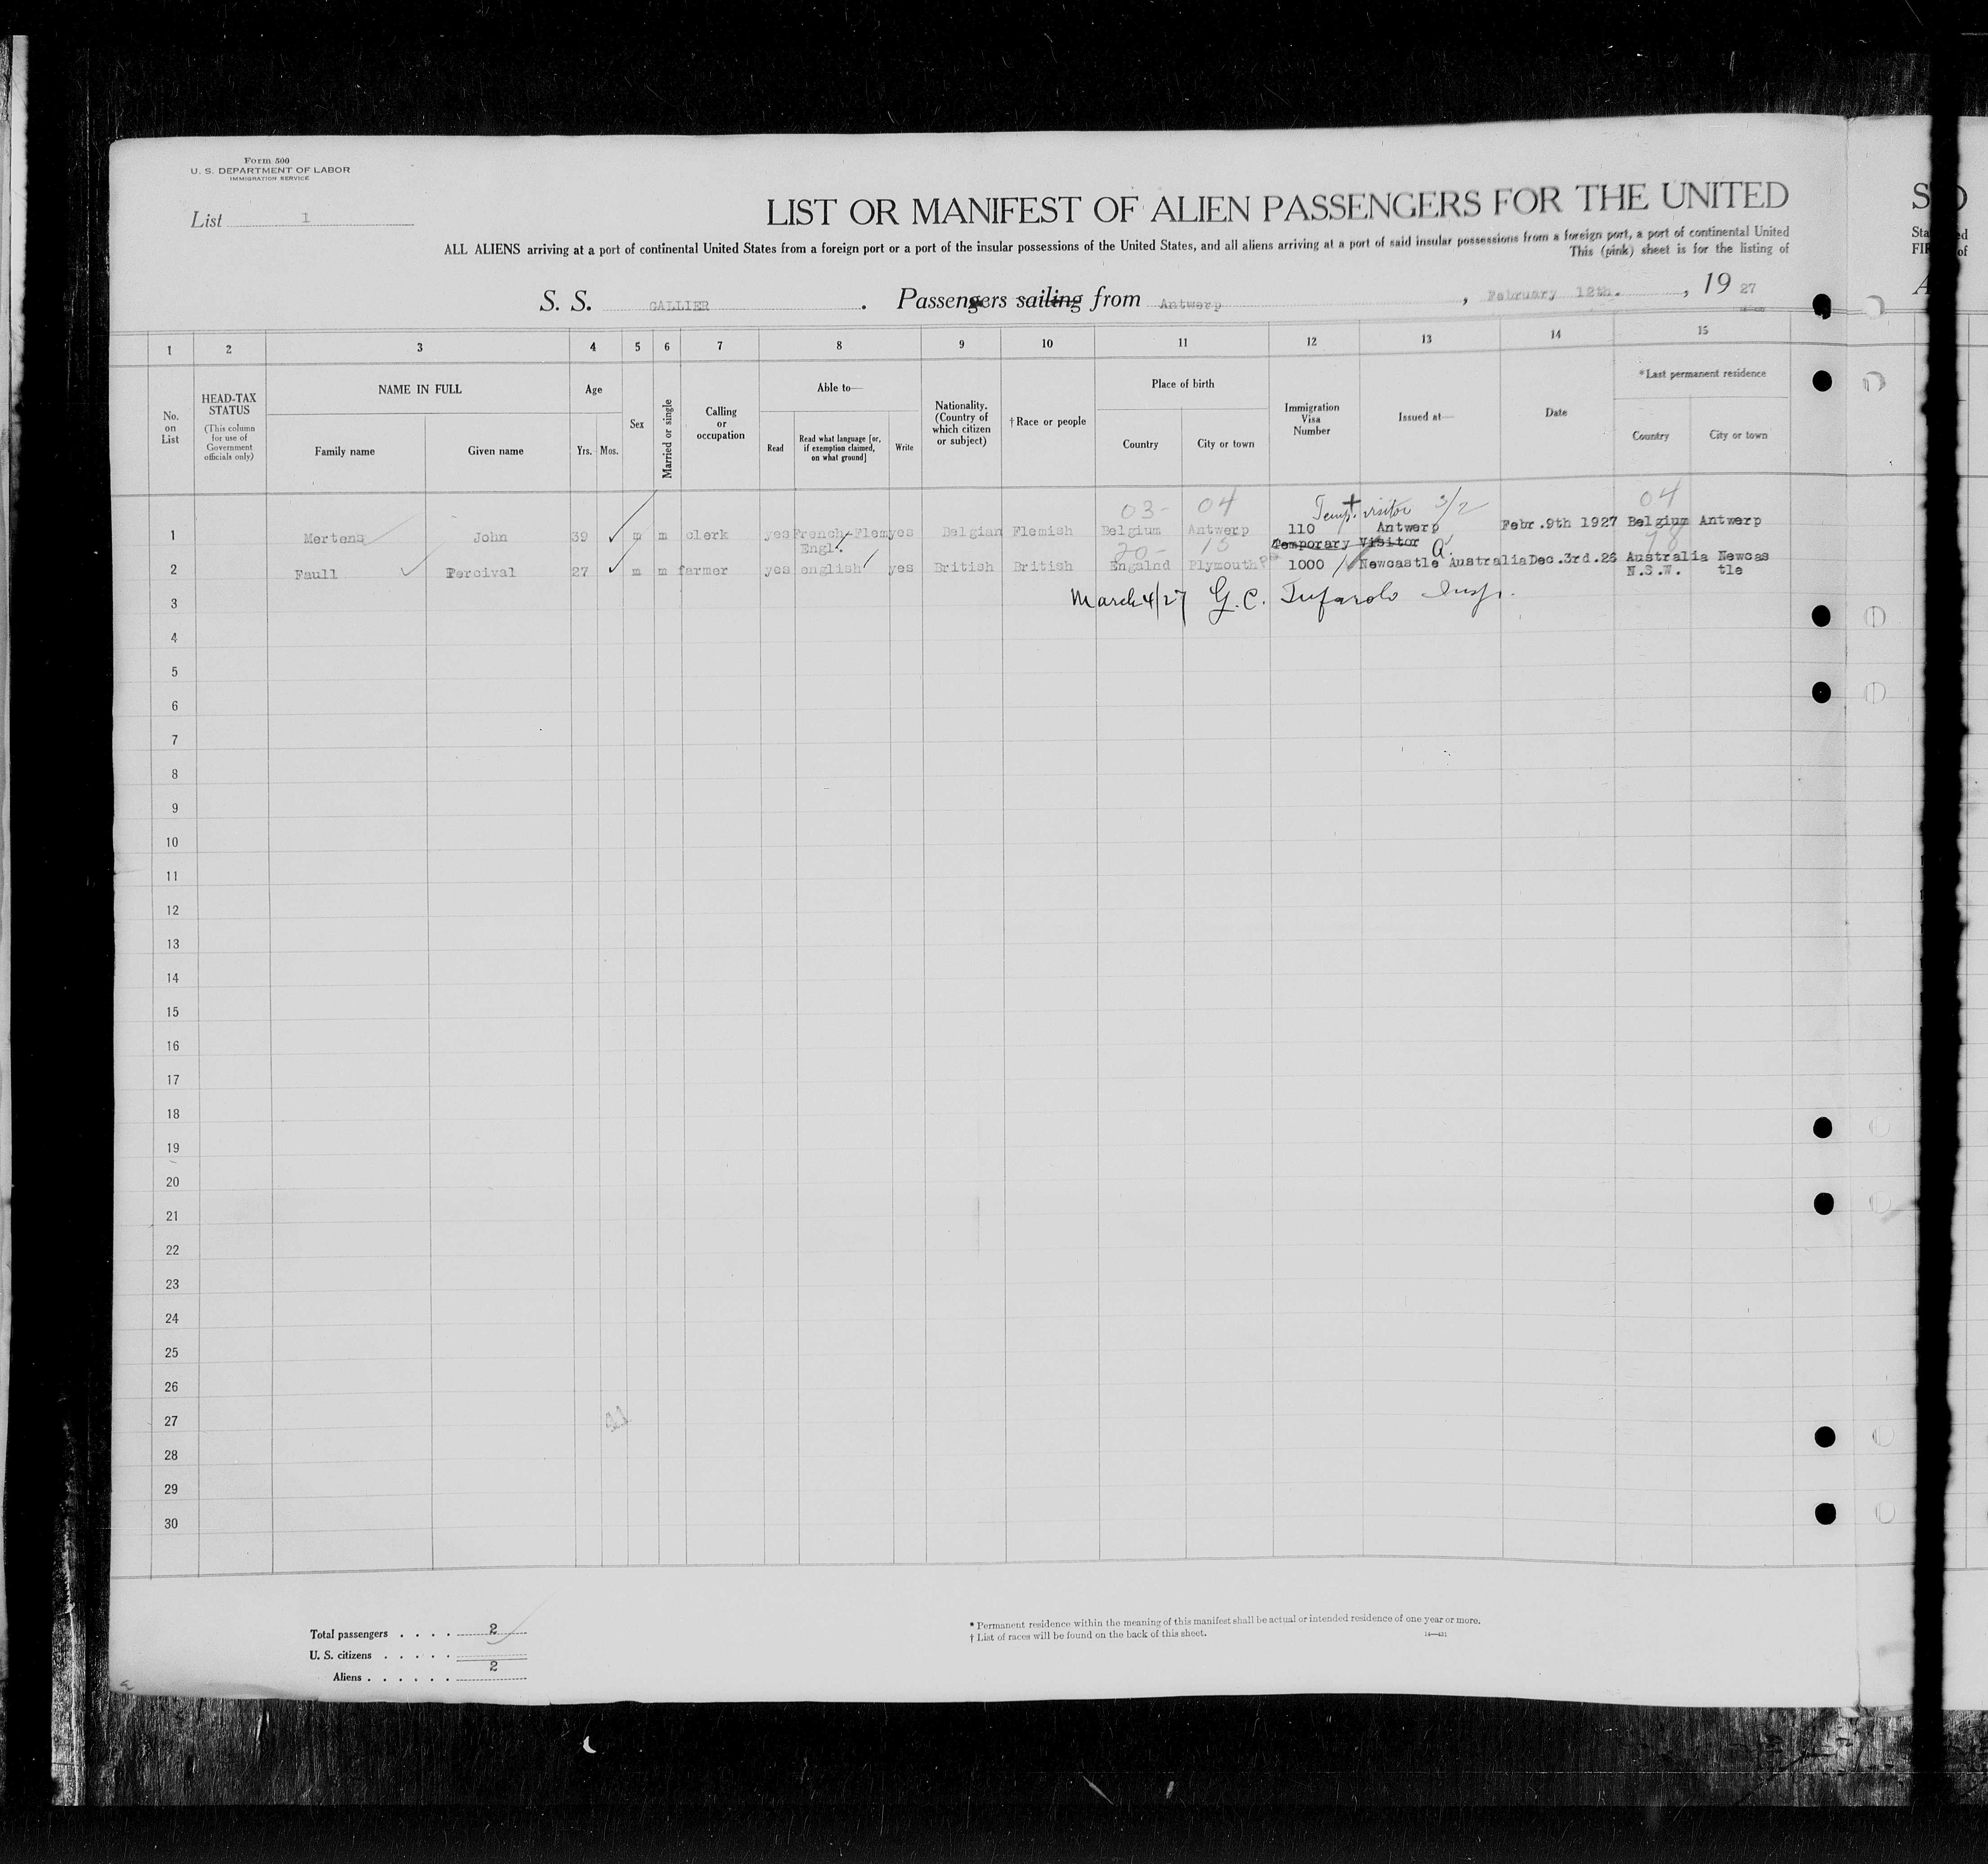 Form 500
U. S. DEPARTMENT OF LABOR
IMMIGRATION SERVICE
List 1
LIST OR MANIFEST OF ALIEN PASSENGERS FOR THE UNITED
ALL ALIENS arriving at a port of continental United States from a foreign port or a port of the insular possessions of the United States, and all aliens arriving at a port of said insular possessions from a foreign port, a port of continental United
This (pink) sheet is for the listing of
S. S. GALLIER . Passengers sailing from Antwerp , February 12th. , 19 27
1 2 3 4 5 6 7 8 9 10 11 12 13 14 15
No. on List
HEAD-TAX STATUS
(This column for use of Government officials only)
NAME IN FULL
Family name Given name
Age
Yrs. Mos.
Sex
Married or single
Calling or occupation
Able to—
Read
Read what language [or, if exemption claimed, on what ground]
Write
Nationality. (Country of which citizen or subject)
† Race or people
Place of birth
Country City or town
Immigration Visa Number
Issued at—
Date
* Last permanent residence
Country City or town
03- 04 Temp. visitor 3/2 04
1 Mertens John 39 m m clerk yes French-Flem yes Belgian Flemish Belgium Antwerp 110 Antwerp Febr.9th 1927 Belgium Antwerp
Engl. Temporary Visitor
20- 13 78
2 Faull Percival 27 m m farmer yes english yes British British Engalnd Plymouth 1000 Newcastle Australia Dec.3rd.26 Australia Newcas
N.S.W. tle
3 March 4/27 G. C. Tufarolo Insp.
4
5
6
7
8
9
10
11
12
13
14
15
16
17
18
19
20
21
22
23
24
25
26
27
28
29
30
Total passengers . . . . 2
U. S. citizens . . . . .
Aliens . . . . . . 2
* Permanent residence within the meaning of this manifest shall be actual or intended residence of one year or more.
† List of races will be found on the back of this sheet.
14—431